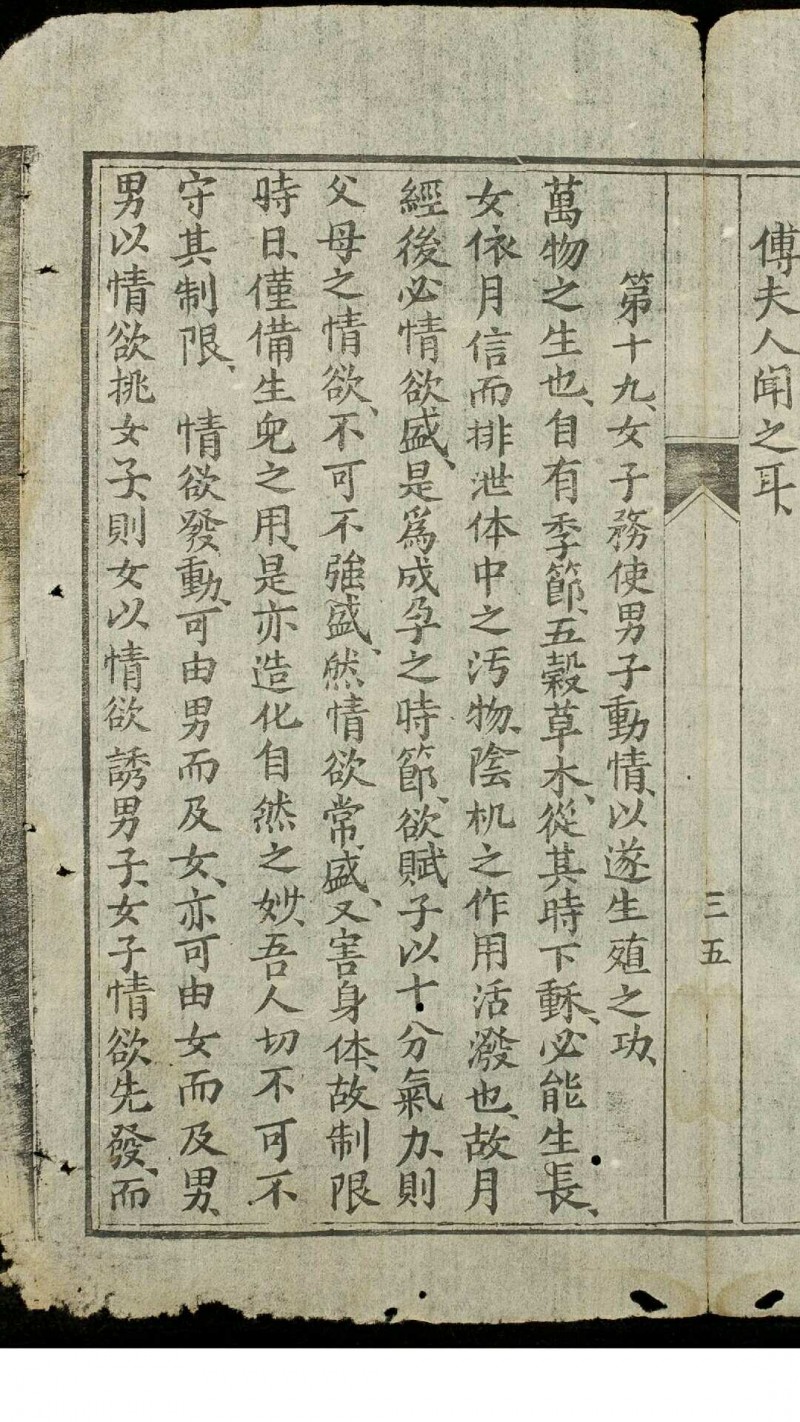 傅夫人聞之耳、
三五
第十九、女子務使男子動情、以遂生殖之功、
萬物之生也、自有季節、五穀草木、從其時下穌、必能生長、
女依月信而排泄体中之汚物、陰机之作用活潑也、故月
經後必情欲盛、是爲成孕之時節、欲賦子以十分氣力、則
父母之情欲、不可不強盛、然情欲常盛、又害身体、故制限
時日、僅備生皃之用、是亦造化自然之妙、吾人切不可不
守其制限、情欲發動、可由男而及女、亦可由女而及男、
男以情欲挑女子、則女以情欲誘男子、女子情欲先發、而